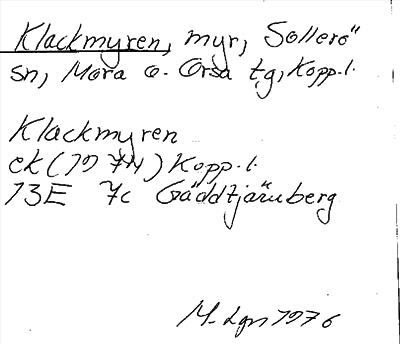 Klackmyren, myr, Sollerö
sn, Mora o. Orsa tg, Kopp.l.
Klackmyren
ek (1974) Kopp.l.
13E 7c Gäddtjärnberg
M. Lgn 1976